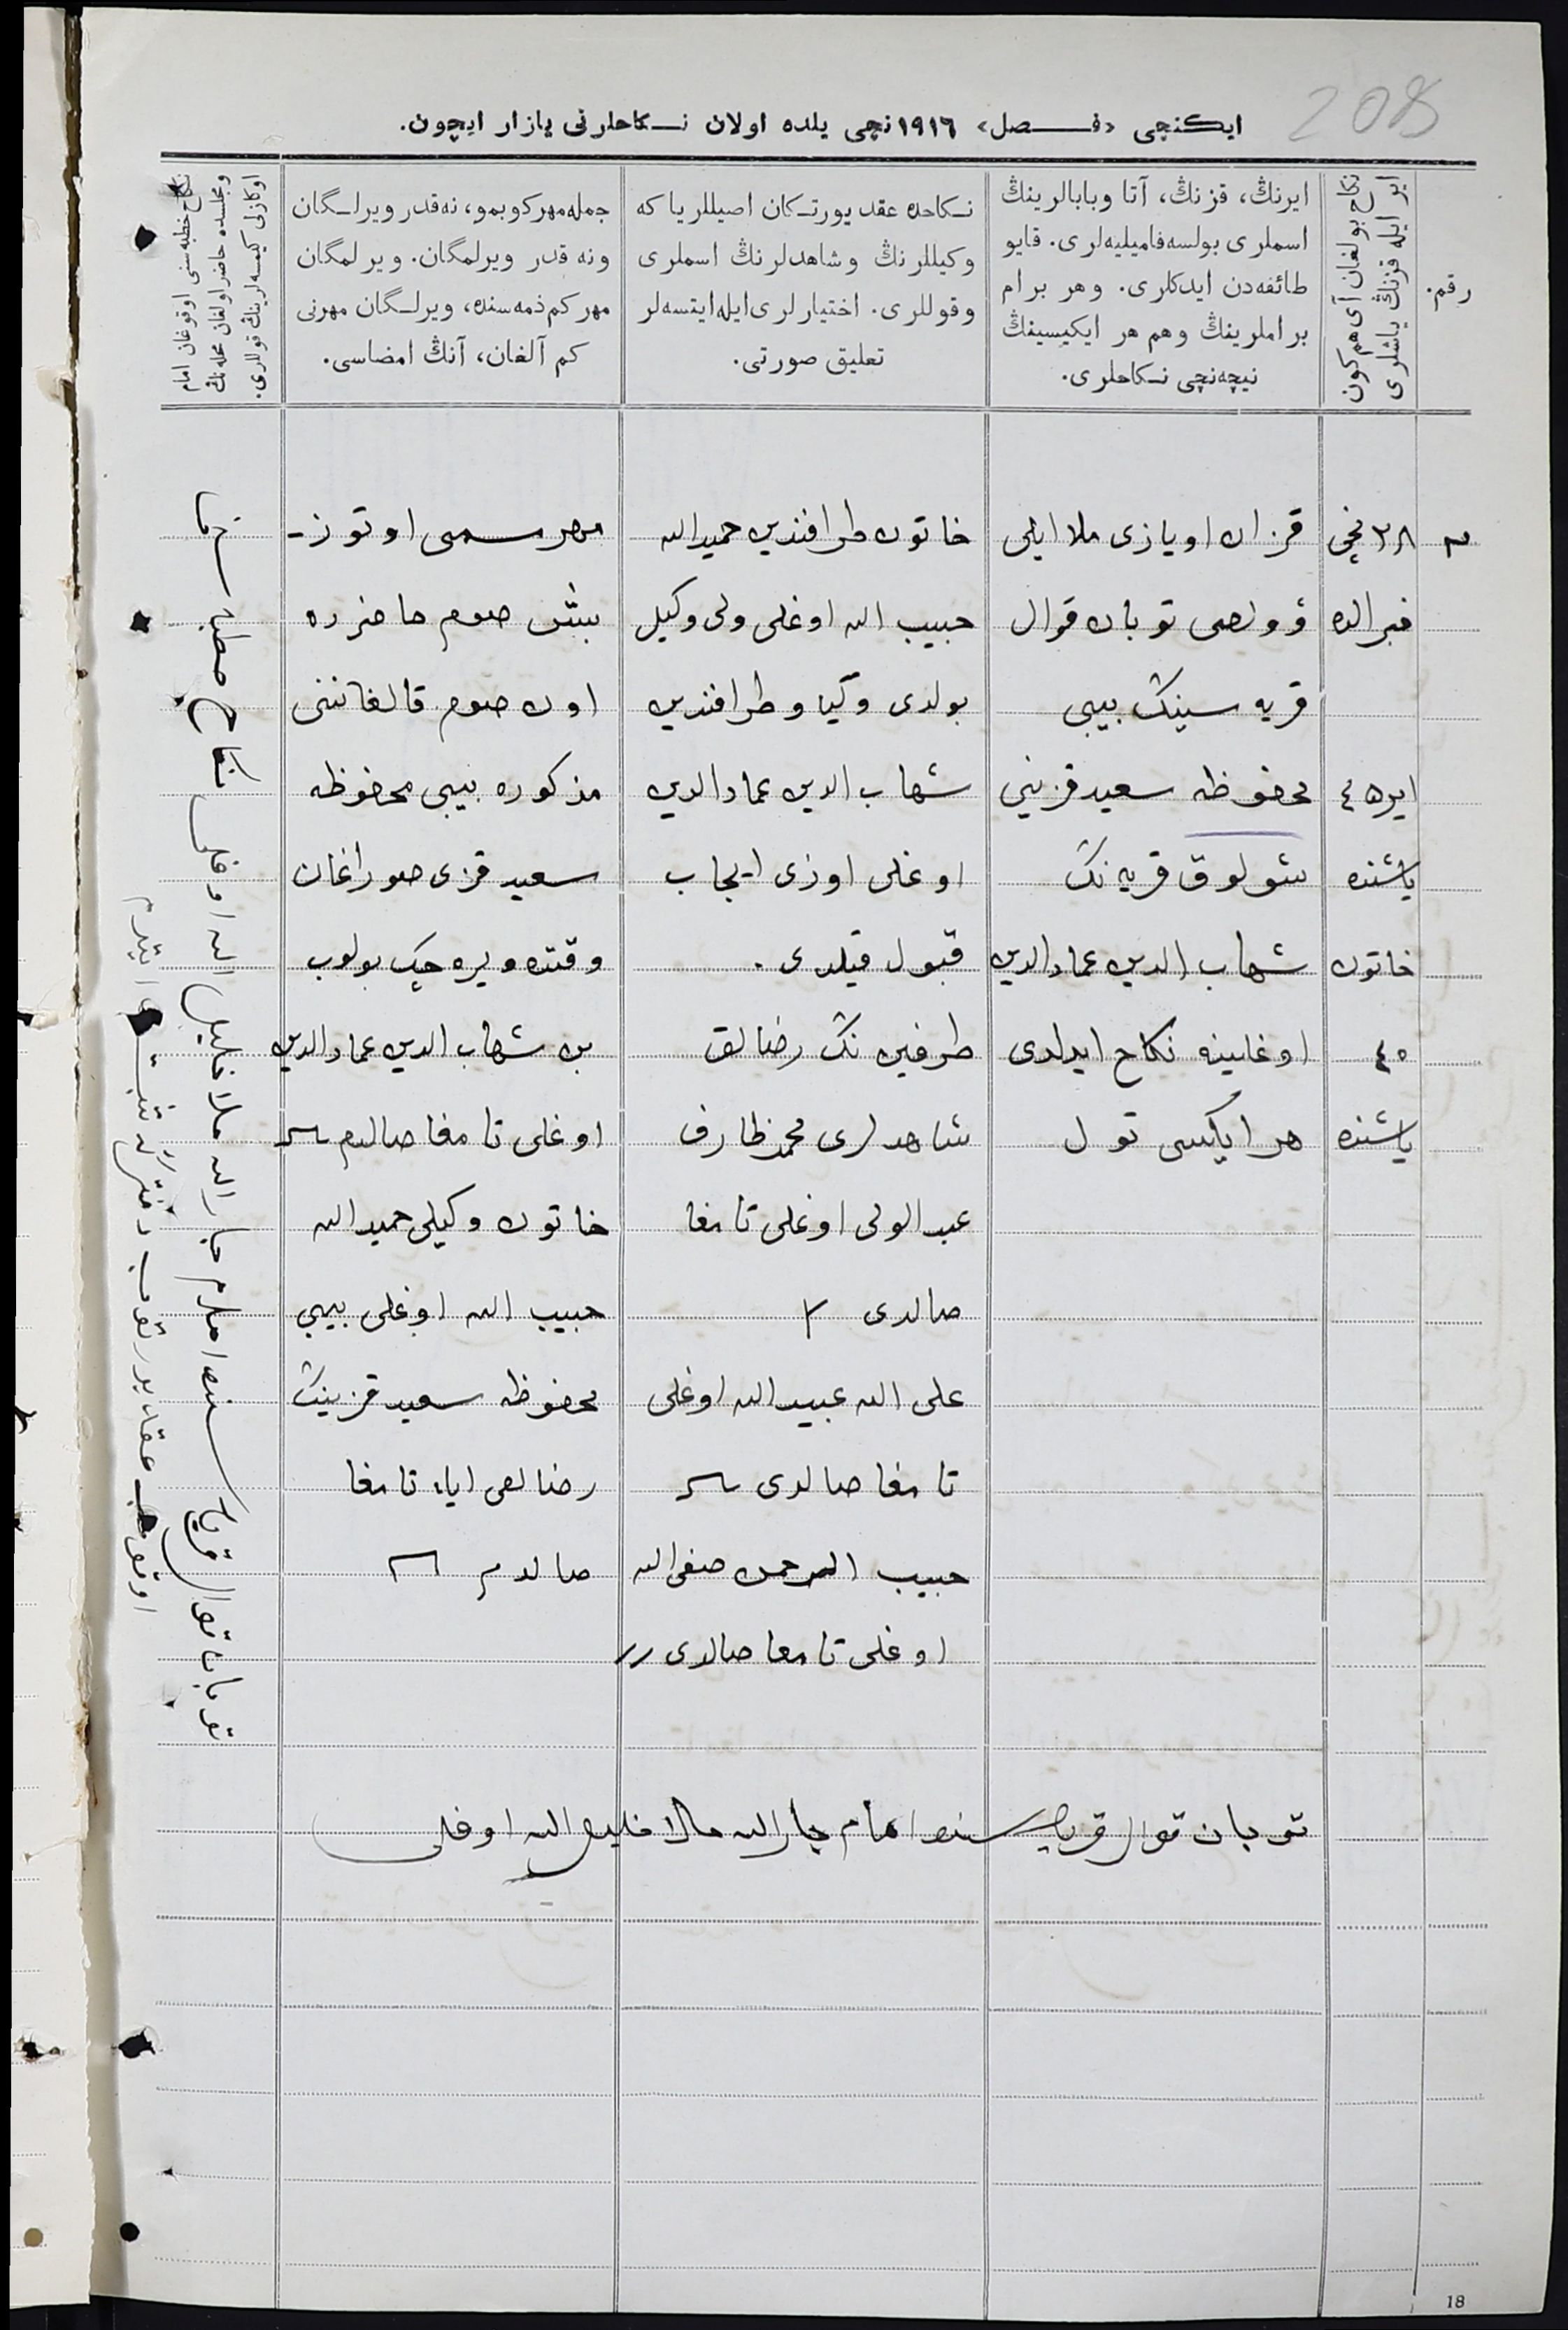 208
ایكنچی «فـــصل» ١٩١٦نچی یلده اولان نـكاحلرنی یازار ایچون.
رقم.
نكاح بولغان آی هم كون
ایر ایله قزنڭ یاشلری
ایرنڭ، قزنڭ، آتا وبابالرینڭ
اسملری بولسه فامیلیه‌لری. قایو
طائفه‌دن ایدكلری. وهر برام
براملرینڭ وهم هر ایكیسینڭ
نیچه‌نچی نـكاحلری.
نـكاحده عقد یورتـكان اصیللریا كه
وكیللرنڭ وشاهدلرنڭ اسملری
وقوللری. اختیارلری ایله ایتسه‌لر
تعلیق صورتی.
جمله مهر كوبمو، نه قدر ویرلـگان
ونه قدر ویرلمگان. ویرلمگان
مهر كم ذمه سنده، ویرلـگان مهرنی
كم آلغان، آنڭ امضاسی.
نكاح خطبه سنی اوقوغان امام
ومجلسده حاضر اولغان محله‌نڭ
اوكازلی كیمسه‌لرینڭ قوللری.
٢٨ نچی
فبرالده
ایر ٤٥
یاشنده
خاتون
٤٥
یاشنده
قزان اویازی ملا ایلی
ؤولصی توبان قوال
قریه سینڭ بیبی
محفوظه سعید قزینی
شولوق قریه نڭ
شهاب الدین عماد الدین
اوغلینه نكاح ایدلدی
هر ایكیسی تول
خاتون طرافندین حمیدالله
حبیب الله اوغلی ولی وكیل
بولدی وكیا و طرافندین
شهاب الدین عمادالدین
اوغلی اوزی ایجاب
قبول قیلدی.
طرفین نڭ رضالق
شاهدلری محمد ظارف
عبد الولی اوغلی تامغا
صالدی
علی الله عبیدالله اوغلی
تامغا صالدی
حبیب الرحمن صفی الله
اوغلی تامغا صالدی
مهر سمی اوتوز-
بیش صوم حاضرده
اون صوم قالغاننی
مذكوره بیبی محفوظه
سعید قزی صوراغان
وقتده ویره چك بولوب
بن شهاب الدین عماد الدین
اوغلی تامغا صالدم
خاتون وكیلی حمیدالله
حبیب الله اوغلی بیبی
محفوظه سعید قزینڭ
رضالقی تامغا
صالدم
توبان قوال قریه سنده امام جارالله ملا خلیل الله اوغلی
توبان قوال قریه سنده امام جارالله ملا خلیل الله اوغلی نكاح خطبه سنی
18